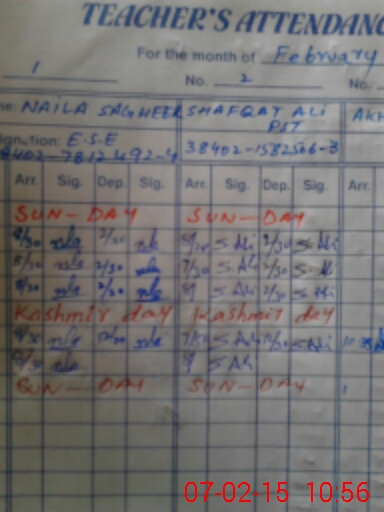 TEACHER'S ATTENDANC
For the month of February
1 No. 2 No.
me: NAILA SAGHEER SHAFQAT ALI AKH
PST
ignation: E.S.E
38402-1582506-3
Arr. Sig. Dep. Sig. Arr. Sig. Dep. Sig. Arr.
SUN-DAY SUN-DAY
8/30 2/30 S Ali 2/30 S Ali
8/30 2/30 7/30 S Ali 2/30 S Ali
8/30 2/30 9 S Ali 2/30 S Ali
Kashmir day Kashmir day
12/30 7/50 S Ali S Ali
9 S Ali
SUN-DAY SUN-DAY
07-02-15 10:56